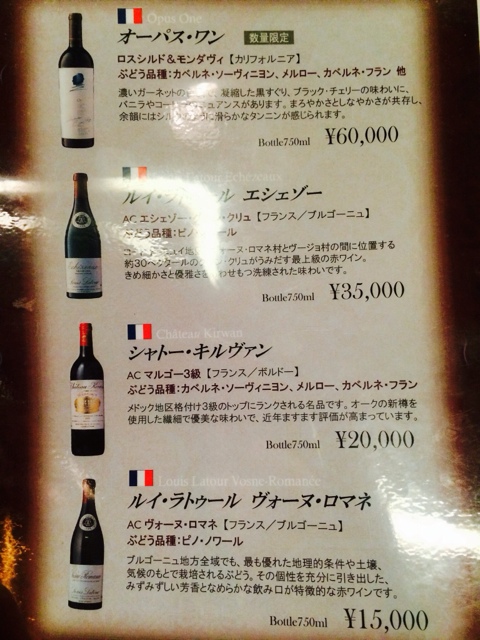 Opus One
オーパス・ワン 数量限定
ロスシルド&モンダヴィ【カリフォルニア】
ぶどう品種:カベルネ・ソーヴィニヨン、メルロー、カベルネ・フラン 他
濃いガーネットの 凝縮した黒すぐり、ブラック・チェリーの味わいに、
バニラやコー ュアンスがあります。まろやかさとしなやかさが共存し、
余韻にはシル うに滑らかなタンニンが感じられます。
Bottle750ml ¥60,000
Echezeaux
ルイ・ ール エシェゾー
AC エシェゾー・ ・クリュ【フランス/ブルゴーニュ】
ぶどう品種:ピノ・ノワール
ュイ地 ーヌ・ロマネ村とヴージョ村の間に位置する
約30ヘクタールの ・クリュがうみだす最上級の赤ワイン。
きめ細かさと優雅さを わせもつ洗練された味わいです。
Bottle750ml ¥35,000
Château Kirwan
シャトー・キルヴァン
AC マルゴー3級【フランス/ボルドー】
ぶどう品種:カベルネ・ソーヴィニヨン、メルロー、カベルネ・フラン
メドック地区格付け3級のトップにランクされる名品です。オークの新樽を
使用した繊細で優美な味わいで、近年ますます評価が高まっています。
Bottle750ml ¥20,000
Louis Latour Vosne-Romance
ルイ・ラトゥール ヴォーヌ・ロマネ
AC ヴォーヌ・ロマネ【フランス/ブルゴーニュ】
ぶどう品種:ピノ・ノワール
ブルゴーニュ地方全域でも、最も優れた地理的条件や土壌、
気候のもとで栽培されるぶどう。その個性を充分に引き出した、
みずみずしい芳香となめらかな飲み口が特徴的な赤ワインです。
Bottle750ml ¥15,000